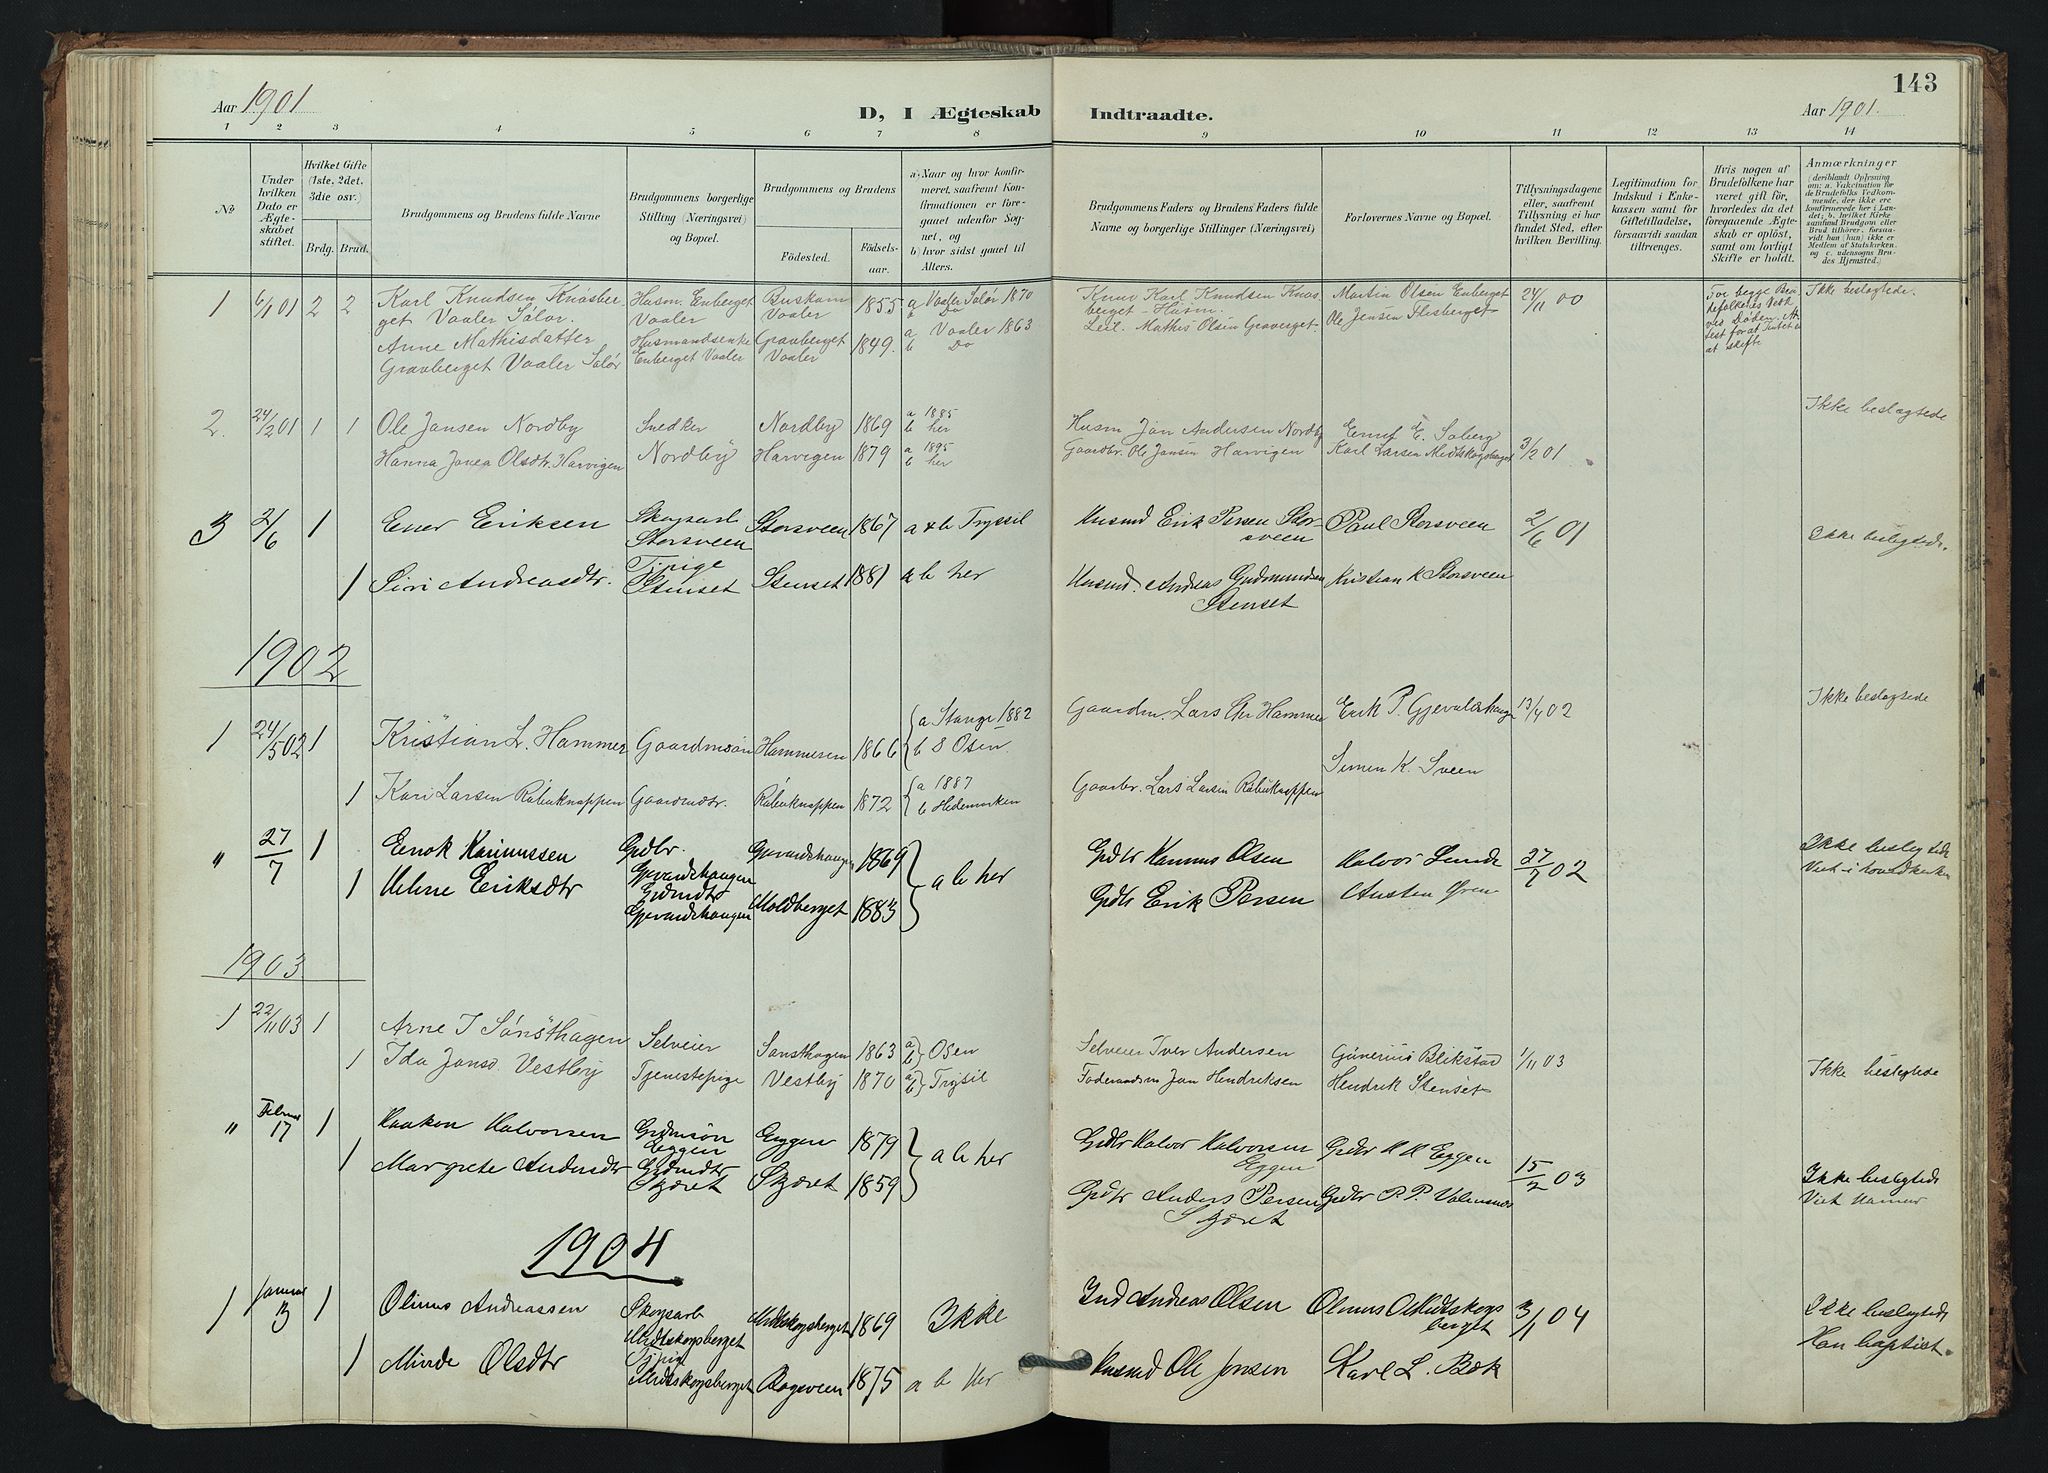 143
Aar 1901
D, I Ægteskab Indtraadte.
Aar 1901.
1 2 3 4 5 6 7 8 9 10 11 12 13 14
No
Under hvilken Dato er Ægteskabet stiftet.
Hvilket Gifte (1ste, 2det, 3die osv.)
Brdg. Brud.
Brudgommens og Brudens fulde Navne
Brudgommens borgerlige Stilling (Næringsvei) og Bopæl.
Brudgommens og Brudens
Födested.
Födsels-aar.
a) Naar og hvor konfirmeret, saafremt Konfirmationen er foregaaet udenfor Sognet, og
b) hvor sidst gaaet til Alters.
Brudgommens Faders og Brudens Faders fulde Navne og borgerlige Stillinger (Næringsvei)
Forlovernes Navne og Bopæl.
Tillysningsdagene eller, saafremt Tillysning ei har fundet Sted, efter hvilken Bevilling.
Legitimation for Indskud i Enkekassen samt for Giftetilladelse, forsaavidt saadan tiltrænges.
Hvis nogen af Brudefolkene har været gift för, hvorledes da det foregaaende Ægteskab er oplöst, samt om lovligt Skifte er holdt.
Anmærkninger
(deriblandt Oplysning om: a. Vakcination for de Brudefolks Vedkommende, der ikke ere konfirmerede her i Landet; b. hvilket Kirkesamfund Brudgom eller Brud tilhörer, forsaavidt han (hun) ikke er Medlem af Statskirken, og c. udensogns Brudes Hjemsted.)
1 6/1 01 2 2 Karl Knudsen Knasber Husm. Enberget Buskam 1855 a Vaaler Solör 1870 Karl Knudsen Knas Martin Olsen Enberget 24/11 00 For begge Bru Ikke beslægtede.
get Vaaler Solør. Vaaler Vaaler b Do berget - Husm. Ole Jensen Flisberget
Arne Mathisdatter Husmandsenke Gravberget 1849. a Vaaler 1863 Mathis Olsen Graverget
Gravberget Vaaler Solør Enberget Vaaler Vaaler b Do at skifte
2 24/2 01 1 1 Ole Jansen Nordby Snedker Nordby 1869 a 1885 b her Husm Jan Andersen Nordby E. Soberg 3/2 01 Ikke beslægtede
Hanna Janea Olsdtr. Harvigen Nordby Harvigen 1879 a 1895 b her Gaardbr. Ole Jansen Harvigen Karl Larsen Midtskogsberget
3 2/6 1 Ener Eriksen Skogsarb Storsveen Storsveen 1867 a & b Trysil Husmd Erik Persen Stor- Paul Storsveen 2/6 01 Ikke beslegtede.
sveen
1 Siri Andreasdtr. Tjpige Stenset Stenset 1881 a b her Husmd. Andreas Gudmundsen Kristian K Storsveen
Stenset
1902
1 24/5 02 1 Kristian L. Hammer Gaardmsön Hammeren 1866 a Stange 1882 Gaardm. Lars Chr Hammer Erik P. Gjevaldshaugen 13/4 02 Ikke beslægtede
b S Osen.
1 Kari Larsen Råbuknappen Gaardmdtr. Råbuknappen 1872 a 1887 b Hedemarken Gaarbr. Lars Larsen Råbuknappen Simen K. Sveen
" 27/7 1 Enok Rasmussen Grdbr. Gjevardshaugen Gjevardshaugen 1869 a b her Grdbr Olsen Halvor Lunde 27/7 02 Ikke beslegtede
Viet i hovedkirken
1 Helene Eriksdtr Grdmdtr Gjevardshaugen Moldberget 1883 Grdbr Erik Persen Austen Øren
1903
1 22/11 03 1 Arne I Sönsthagen Selveier Sønsthagen 1863 a b Osen Selveier Iver Andersen Gunerius Blikstad 1/11 03 Ikke beslegtede
1 Ida Jansd. Vestby Tjenestepige Vestby 1870 a b Trysil Föderaadsm Jan Hendriksen Hendrik Stenset
" Februar 17 1 Haakon Halvorsen Grdmsøn Eggen Eggen 1879 a b her Grdbr Halvor Halvorsen Eggen Grdbr H H Eggen 15/2 03 Ikke beslegtede
Viet Hamar
1 Margrete Andersdtr Grdmdtr Skjæret Skjæret 1859 Grdbr Anders Persen Skjæret Grdbr P. P.
1904
1 Januar 3 1 Olinus Andreassen Skogsarb Midtskogsberget Midtskogsberget 1869 Ikke Ind Andreas Olsen Olinus O Midtskogsberget 3/1 04 Ikke beslegtede
Han baptist.
1 Minda Olsdtr Tjpige Midtskogsberget Bagsveen 1875 a b her Husmd Ole Jensen Karl L. Bæk